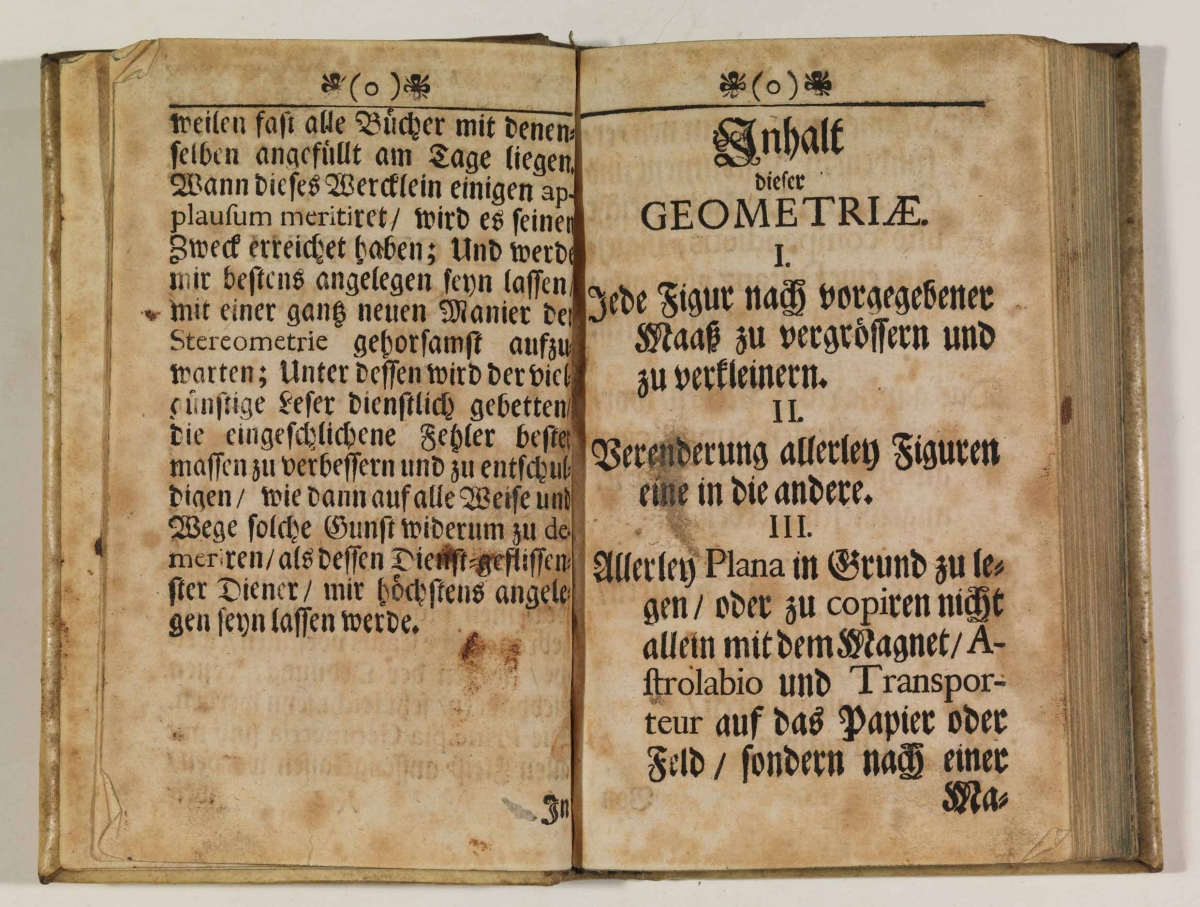 (o)
weilen fast alle Bücher mit denen-
selben angefüllt am Tage liegen.
Wann dieses Wercklein einigen ap-
plausum meritiret/ wird es seinen
Zweck erreichet haben; Und werde
mir bestens angelegen seyn lassen/
mit einer gantz neuen Manier der
Stereometrie gehorsamst aufzu-
warten; Unter dessen wird der viel-
günstige Leser dienstlich gebetten/
die eingeschlichene Fehler bester
massen zu verbessern und zu entschul-
digen/ wie dann auf alle Weise und
Wege solche Gunst widerum zu de-
meriren/ als dessen Dienst-geflissen-
ster Diener/ mir höchstens angele-
gen seyn lassen werde.
In
(o)
Inhalt
dieser
GEOMETRIÆ.
I.
Jede Figur nach vorgegebener
Maaß zu vergrössern und
zu verkleinern.
II.
Verenderung allerley Figuren
eine in die andere.
III.
Allerley Plana in Grund zu le-
gen/ oder zu copiren nicht
allein mit dem Magnet/ A-
strolabio und Transpor-
teur auf das Papier oder
Feld/ sondern nach einer
Ma-